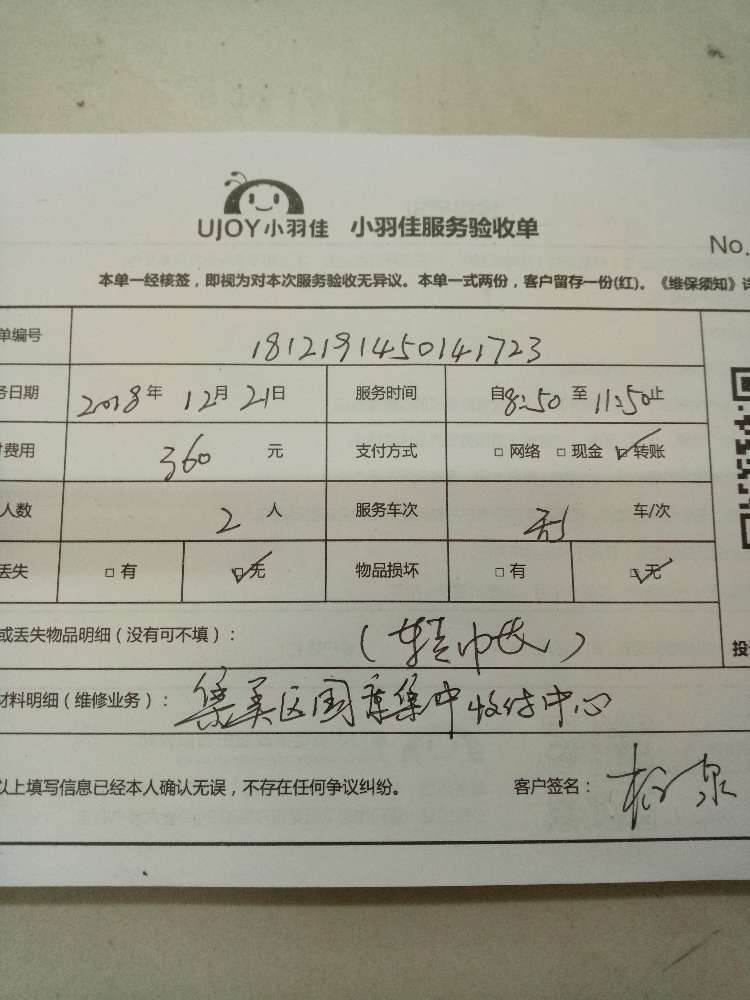 UJOY小羽佳 小羽佳服务验收单
No.
本单一经核签，即视为对本次服务验收无异议。本单一式两份，客户留存一份(红)。《维保须知》
单编号 1812191450141723
务日期 2018年 12月 21日 服务时间 自8:50至11:50止
费用 360 元 支付方式 □ 网络 □ 现金 ☑ 转账
人数 2 人 服务车次 车/次
丢失 □ 有 ☑ 无 物品损坏 □ 有 ☑ 无
或丢失物品明细（没有可不填）：
材料明细（维修业务）：集美区国库集中收付中心
以上填写信息已经本人确认无误，不存在任何争议纠纷。 客户签名：
投